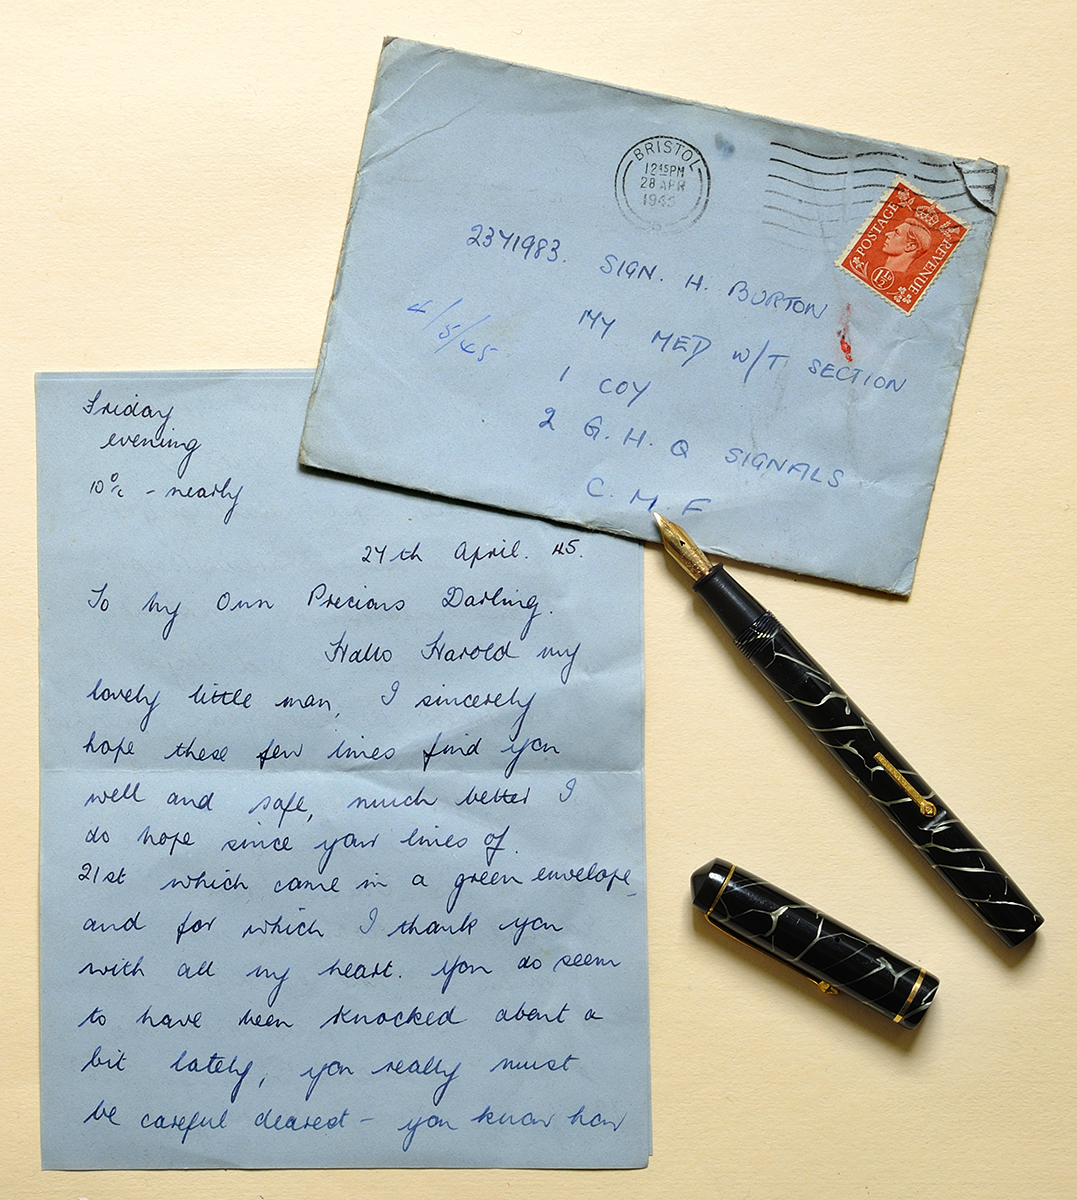 BRISTOL
12 45 PM
28 APR
1945
POSTAGE
REVENUE
1½D
2371983. SIGN. H. BURTON
MY MED W/T SECTION
1 COY
2 G.H.Q SIGNALS
C.M.F
4/5/45
Friday
evening
10 o/c - nearly
27th April. 45.
To My Own Precious Darling.
Hallo Harold my
lovely little man, I sincerely
hope these few lines find you
well and safe, much better I
do hope since your lines of.
21st which came in a green envelope
and for which I thank you
with all my heart. You do seem
to have been knocked about a
bit lately, you really must
be careful dearest - you know how